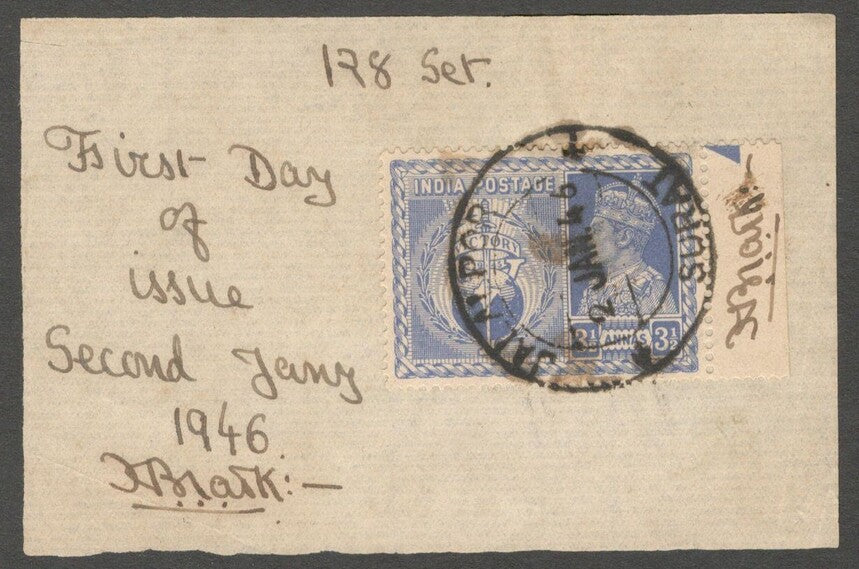 178 Set.
First Day
of
issue
Second Jany
1946
INDIA POSTAGE
VICTORY
3½ ANNAS 3½
SURAT
2 JAN. 46